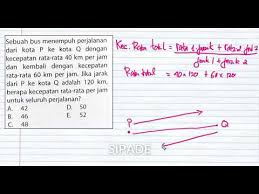 Sebuah bus menempuh perjalanan
dari kota P ke kota Q dengan
kecepatan rata-rata 40 km per jam
dan kembali dengan kecepatan
rata-rata 60 km per jam. Jika jarak
dari P ke kota Q adalah 120 km,
berapa kecepatan rata-rata per jam
untuk seluruh perjalanan?
A. 42 D. 50
B. 46 E. 52
C. 48
Kec. Rata total =
jarak 1 + jarak 2
Rata total = 40 x 120 + 60 x 120
P Q
SIPADE